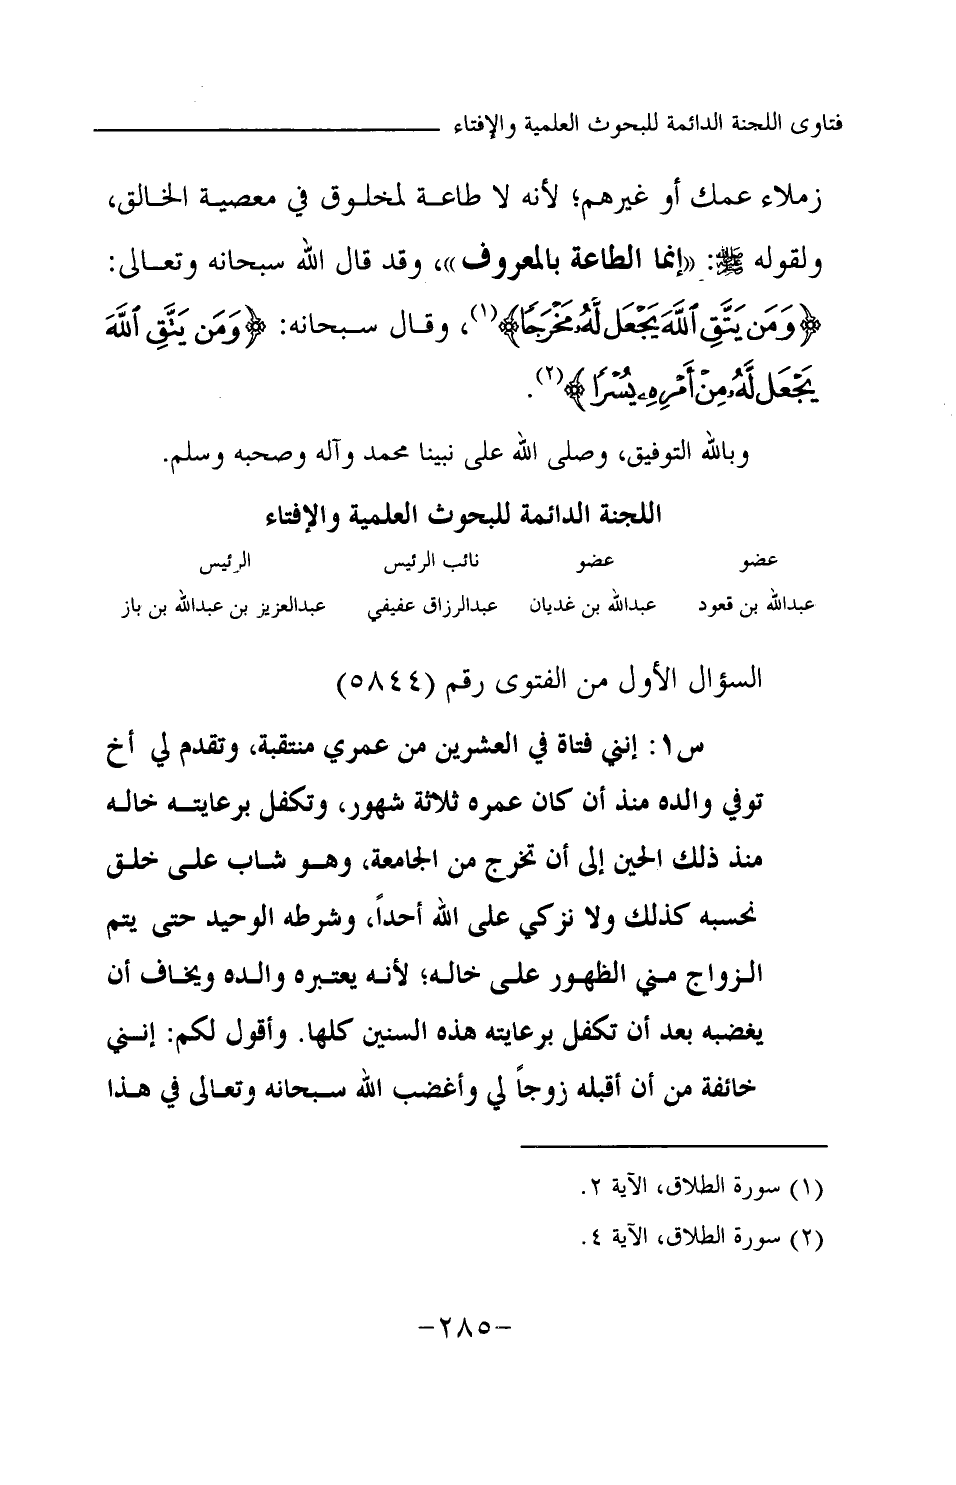 فتاوى اللجنة الدائمة للبحوث العلمية والإفتاء
زملاء عمك أو غيرهم؛ لأنه لا طاعة لمخلوق في معصية الخالق،
ولقوله ﷺ: «إنما الطاعة بالمعروف»، وقد قال الله سبحانه وتعالى:
﴿وَمَن يَتَّقِ ٱللَّهَ يَجْعَل لَّهُۥ مَخْرَجًا﴾(١)، وقال سبحانه: ﴿وَمَن يَتَّقِ ٱللَّهَ
يَجْعَل لَّهُۥ مِنْ أَمْرِهِۦ يُسْرًا﴾(٢).
وبالله التوفيق، وصلى الله على نبينا محمد وآله وصحبه وسلم.
اللجنة الدائمة للبحوث العلمية والإفتاء
عضو عضو نائب الرئيس الرئيس
عبدالله بن قعود عبدالله بن غديان عبدالرزاق عفيفي عبدالعزيز بن عبدالله بن باز
السؤال الأول من الفتوى رقم (٥٨٤٤)
س١: إنني فتاة في العشرين من عمري منتقبة، وتقدم لي أخ
توفي والده منذ أن كان عمره ثلاثة شهور، وتكفل برعايته خاله
منذ ذلك الحين إلى أن تخرج من الجامعة، وهو شاب على خلق
نحسبه كذلك ولا نزكي على الله أحداً، وشرطه الوحيد حتى يتم
الزواج مني الظهور على خاله؛ لأنه يعتبره والده ويخاف أن
يغضبه بعد أن تكفل برعايته هذه السنين كلها. وأقول لكم: إنني
خائفة من أن أقبله زوجاً لي وأغضب الله سبحانه وتعالى في هذا
(١) سورة الطلاق، الآية ٢.
(٢) سورة الطلاق، الآية ٤.
-٢٨٥-